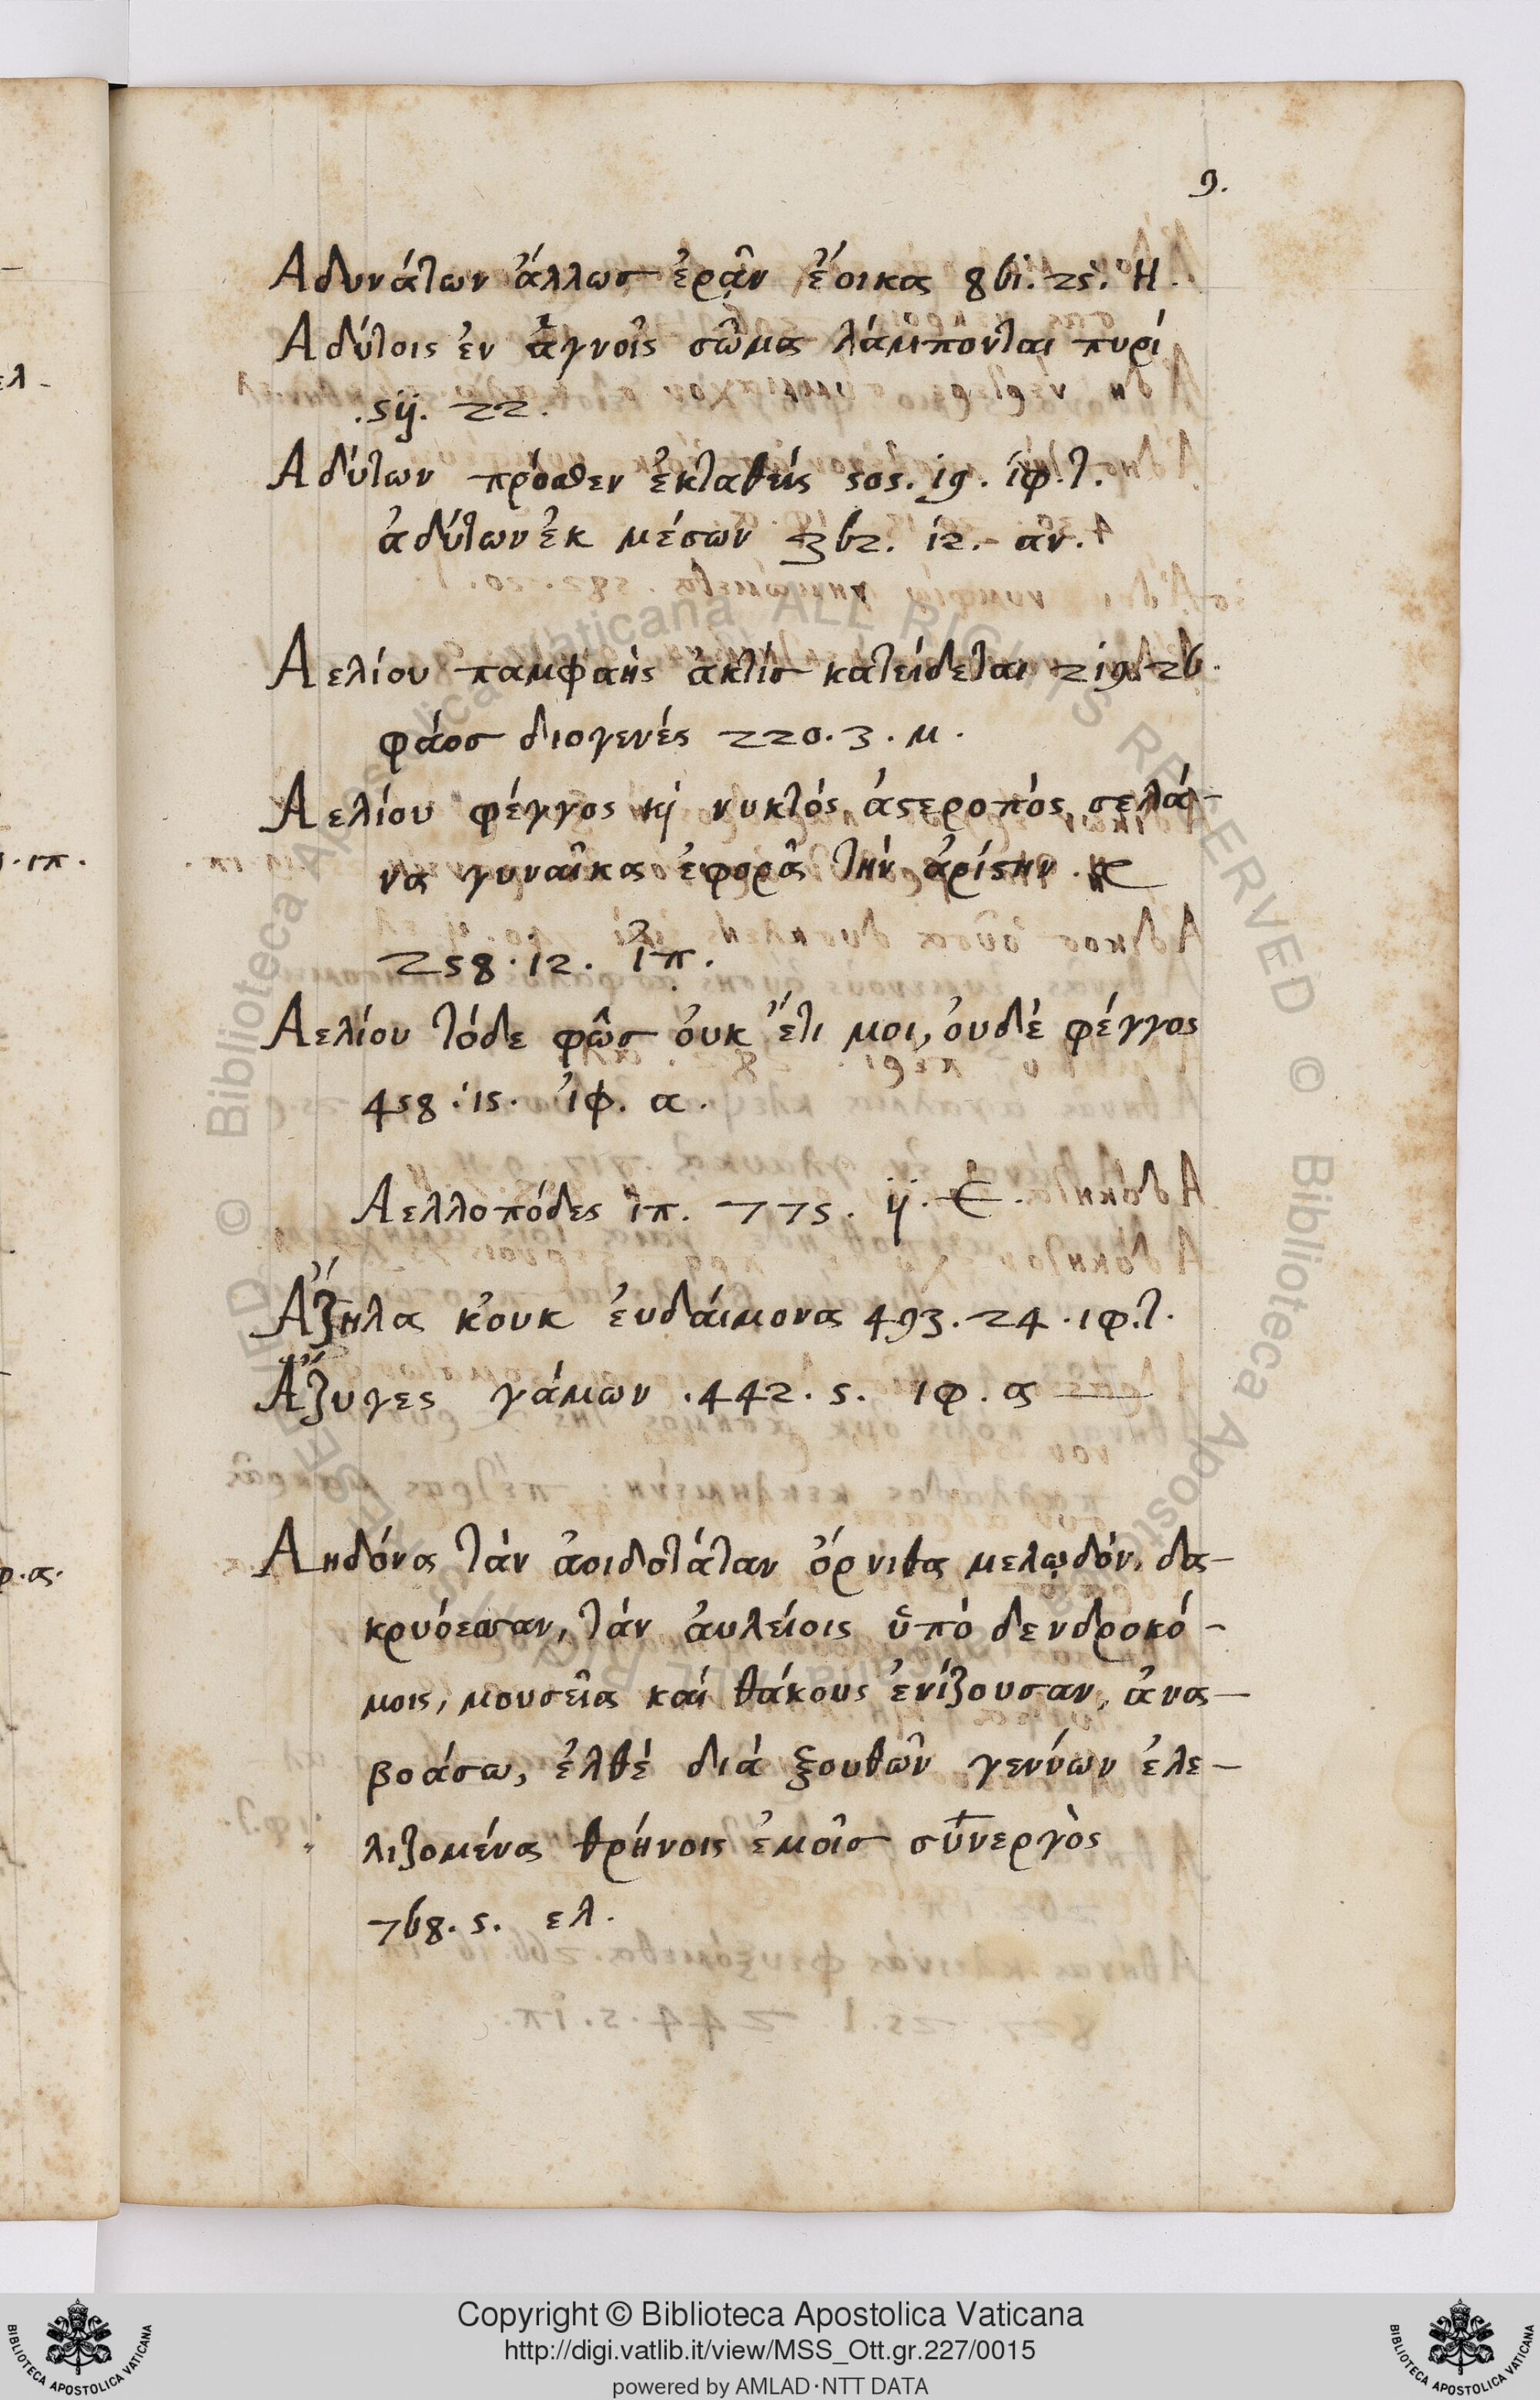 9.
Αδυνάτων ἄλλωσ ἐρᾷν ἔοικας 861. 25. Η.
Αδύτοις ἐν ἁγνοῖς σῶμα λάμπονται πυρί
.511. 22.
Αδύτων πρόσθεν ἐκταθείς 505. 19. ἰφ. τ.
ἀδύτων ἐκ μέσων 362. 12. αν.
Αελίου παμφαὴς ἀκτίσ κατείδεται 219. 26.
φάοσ διογενές 220. 3. μ.
Αελίου φέγγος κὶ νυκτός ἀστεροπός, σελά-
να γυναῖκα ἐφορᾶ τὴν ἀρίστην.
258. 12. ἱπ.
Αελίου τόδε φῶσ ὀυκ ἔτι μοι, ὀυδέ φέγγος
458. 15. ἰφ. α.
Αελλοπόδες ἱπ. 775. 11.
Ἄζηλα κὀυκ ἐυδάιμονα 493. 24. ιφ. τ.
Ἄζυγες γάμων .442. 5. ιφ. α
Αηδόνα τὰν ἀοιδοτάταν ὄρνιθα μελῳδόν, δα-
κρυόεσσαν, τάν ἀυλείοις ὑπό δενδροκό-
μοις, μουσεῖα καί θάκους ἐνίζουσαν, ἀνα-
βοάσω, ἐλθέ διά ξουθῶν γενύων ἐλε-
λιζομένα θρήνοις ἐμοῖσ σύνεργὸς
768. 5. ελ.
Copyright © Biblioteca Apostolica Vaticana
http://digi.vatlib.it/view/MSS_Ott.gr.227/0015
powered by AMLAD·NTT DATA
BIBLIOTECA APOSTOLICA VATICANA
BIBLIOTECA APOSTOLICA VATICANA